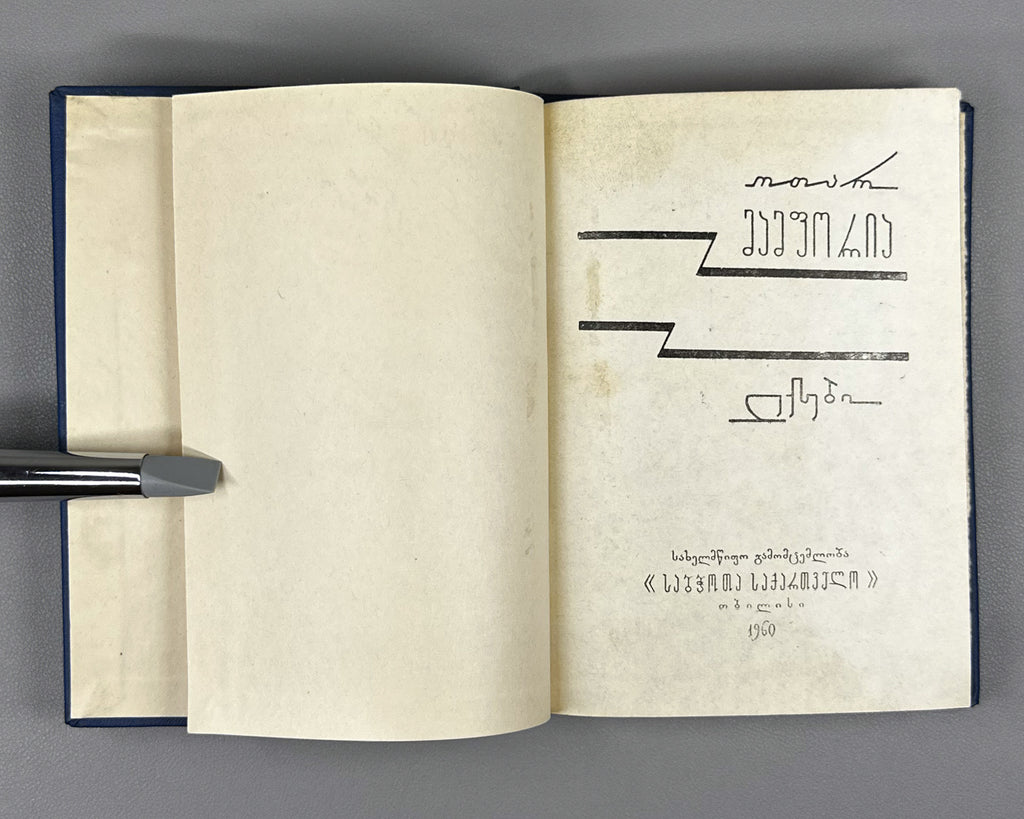 ოთარ
მამფორია
ლექსები
სახელმწიფო გამომცემლობა
« საბჭოთა საქართველო »
თბილისი
1960